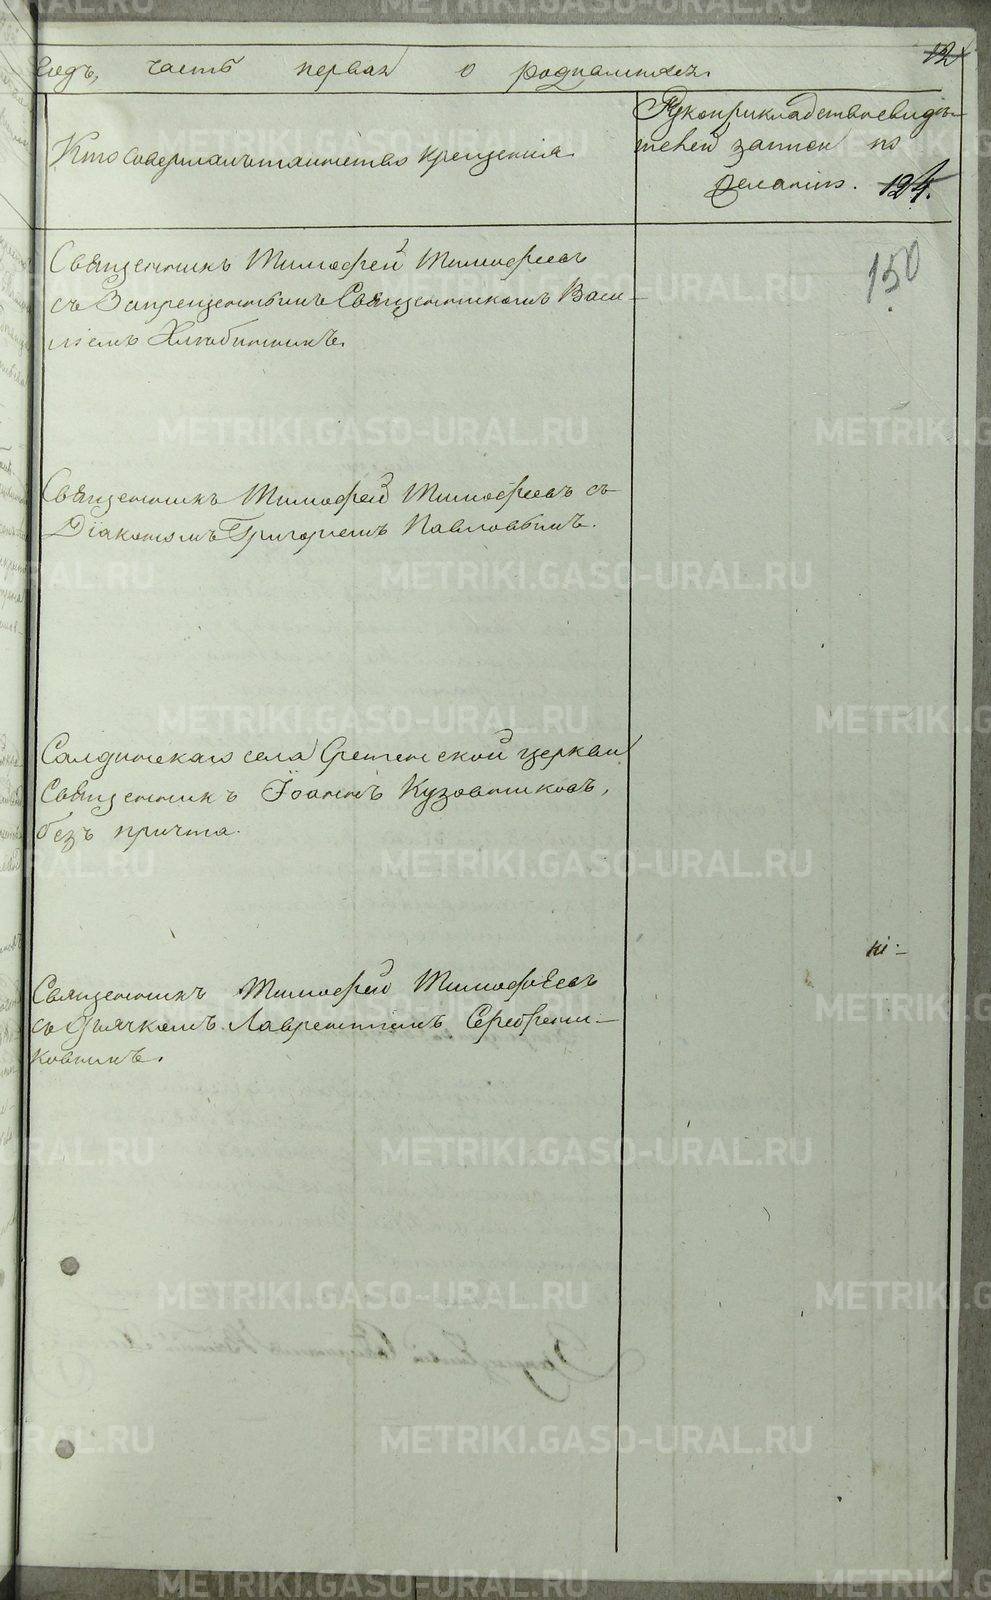 годъ, часть первая о родившихся.
12
Кто совершалъ таинство крещенія.
Рукоприкладство свидѣ-
телей записи по
желанію. 124.
150
Священникъ Тимофей Тимофеевъ
съ Запрещеннымъ Священникомъ Васи-
ліемъ Хлюбинымъ.
Священникъ Тимофей Тимофеевъ съ
Діакономъ Григоріемъ Павловымъ.
Салдинскаго села Срѣтенской церкви
Священникъ Іоаннъ Кузовниковъ,
безъ причта.
кі-
Священникъ Тимофей Тимофѣевъ
съ Дьячкомъ Лаврентіемъ Серебрени-
ковымъ.
METRIKI.GASO-URAL.RU